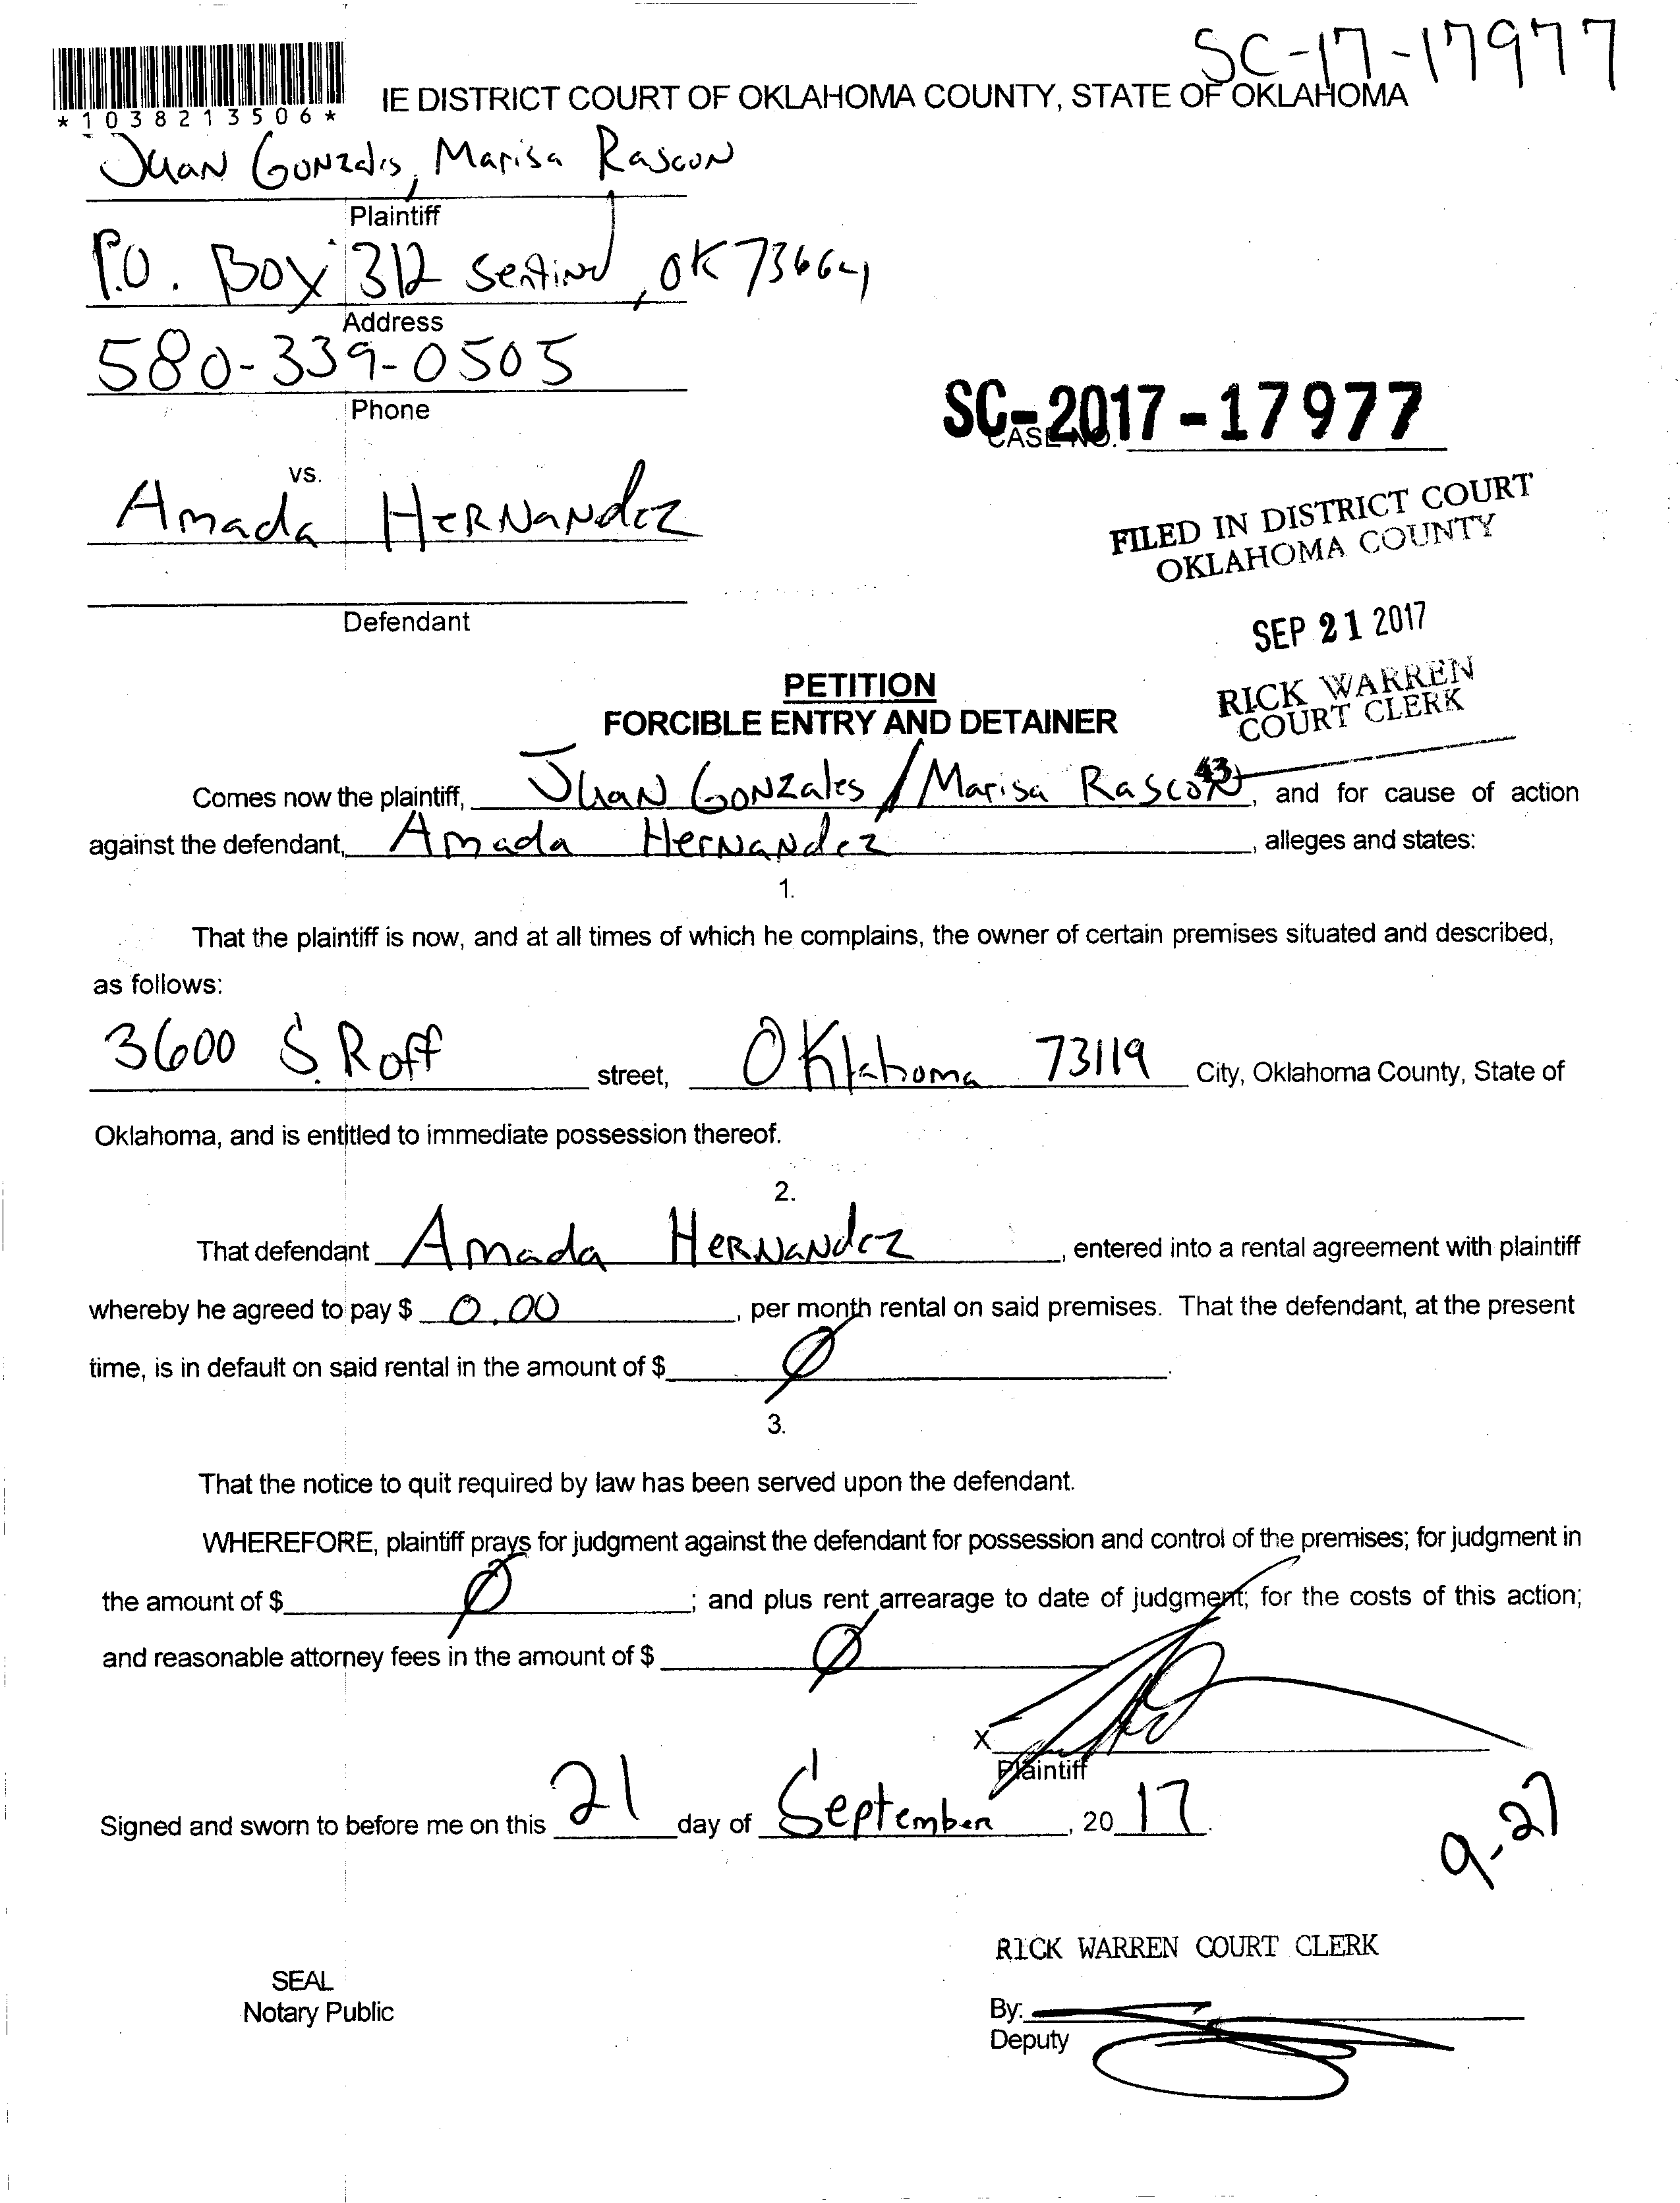 SC-17-17977
*1038213506*
IE DISTRICT COURT OF OKLAHOMA COUNTY, STATE OF OKLAHOMA
Juan Gonzales, Marisa Rascon
Plaintiff
P.O. Box 312 Sentinel, OK 73664
Address
580-339-0505
Phone
SC-2017-17977
CASE NO.
vs.
Amada Hernandez
FILED IN DISTRICT COURT
OKLAHOMA COUNTY
Defendant
SEP 21 2017
PETITION
RICK WARREN
COURT CLERK
FORCIBLE ENTRY AND DETAINER
43
Comes now the plaintiff, Juan Gonzales / Marisa Rascon, and for cause of action
against the defendant, Amada Hernandez, alleges and states:
1.
That the plaintiff is now, and at all times of which he complains, the owner of certain premises situated and described,
as follows:
3600 S. Roff street, Oklahoma 73119 City, Oklahoma County, State of
Oklahoma, and is entitled to immediate possession thereof.
2.
That defendant Amada Hernandez, entered into a rental agreement with plaintiff
whereby he agreed to pay $ 0.00, per month rental on said premises. That the defendant, at the present
time, is in default on said rental in the amount of $ Ø.
3.
That the notice to quit required by law has been served upon the defendant.
WHEREFORE, plaintiff prays for judgment against the defendant for possession and control of the premises; for judgment in
the amount of $ Ø; and plus rent arrearage to date of judgment; for the costs of this action;
and reasonable attorney fees in the amount of $ Ø
X
Plaintiff
Signed and sworn to before me on this 21 day of September, 2017.
9-27
RICK WARREN COURT CLERK
SEAL
Notary Public
By:
Deputy